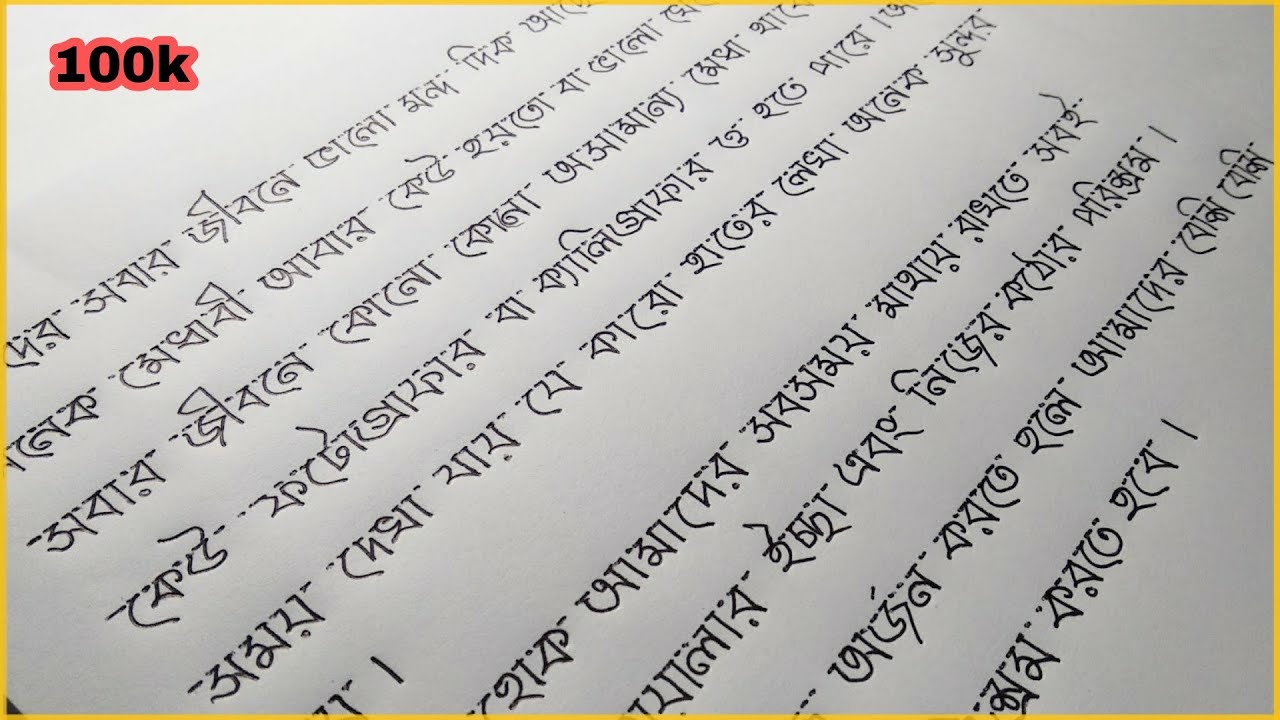 100k
সবার জীবনে ভালো মন্দ দিক
মেধাবী আবার কেউ হয়তো বা ভালো
সবার জীবনে কোনো কোনো অসামান্য মেধা
কেউ ফটোগ্রাফার বা ক্যালিগ্রাফার ও হতে পারে।
সময় দেখা যায় যে কারো হাতের লেখা অনেক সুন্দর
।
হোক আমাদের সবসময় মাথায় রাখতে সবই
ইচ্ছা এবং নিজের কঠোর পরিশ্রম।
অর্জন করতে হলে আমাদের বেশি বেশি
করতে হবে।